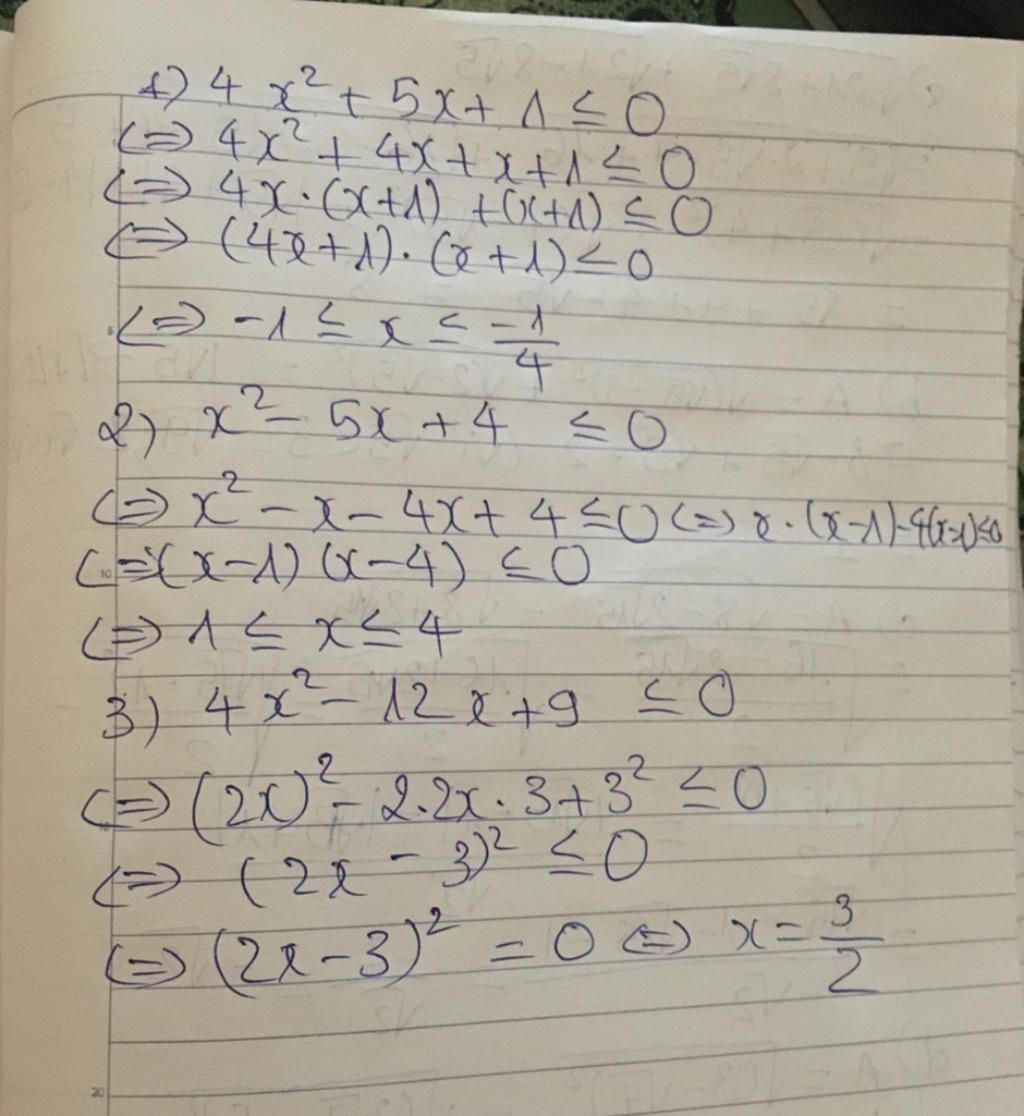 1) 4x² + 5x + 1 ≤ 0
<=> 4x² + 4x + x + 1 ≤ 0
<=> 4x.(x+1) + (x+1) ≤ 0
<=> (4x+1).(x+1) ≤ 0
<=> -1 ≤ x ≤ -1/4
2) x² - 5x + 4 ≤ 0
<=> x² - x - 4x + 4 ≤ 0 <=> x.(x-1)-4(x-1)≤0
<=> (x-1)(x-4) ≤ 0
<=> 1 ≤ x ≤ 4
3) 4x² - 12x + 9 ≤ 0
<=> (2x)² - 2.2x.3 + 3² ≤ 0
<=> (2x - 3)² ≤ 0
<=> (2x-3)² = 0 <=> x = 3/2
20